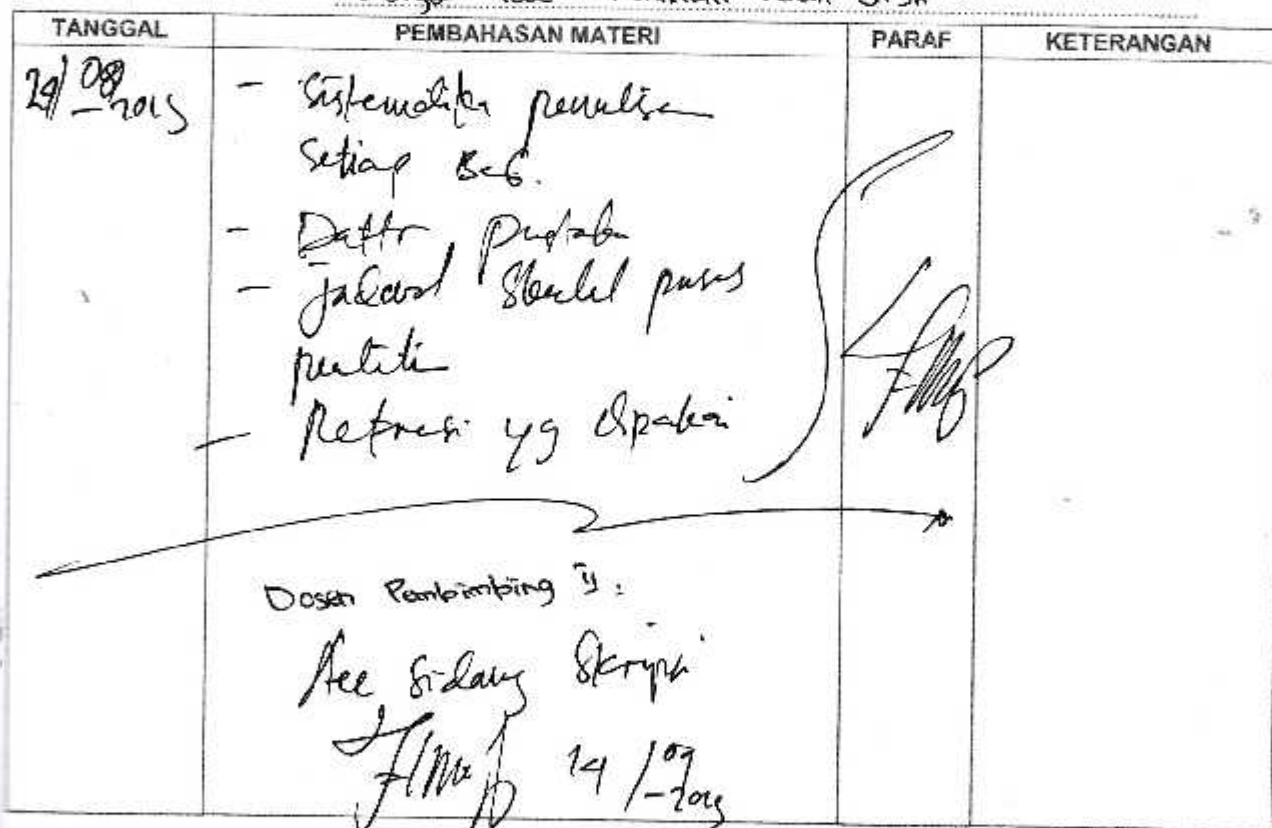 TANGGAL PEMBAHASAN MATERI PARAF KETERANGAN
24/08-2015 - Sistematika penulisan
setiap Bab.
- Daftar Pustaka
- Jadwal
- yg dipakai
Dosen Pembimbing II:
Acc Sidang Skripsi
14/09-2015